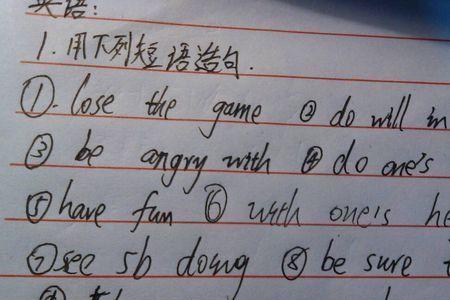 英语:
1. 用下列短语造句.
①. lose the game ② do will in
③ be angry with ④ do one's
⑤ have fun ⑥ with one's he
⑦ see sb doing ⑧ be sure t